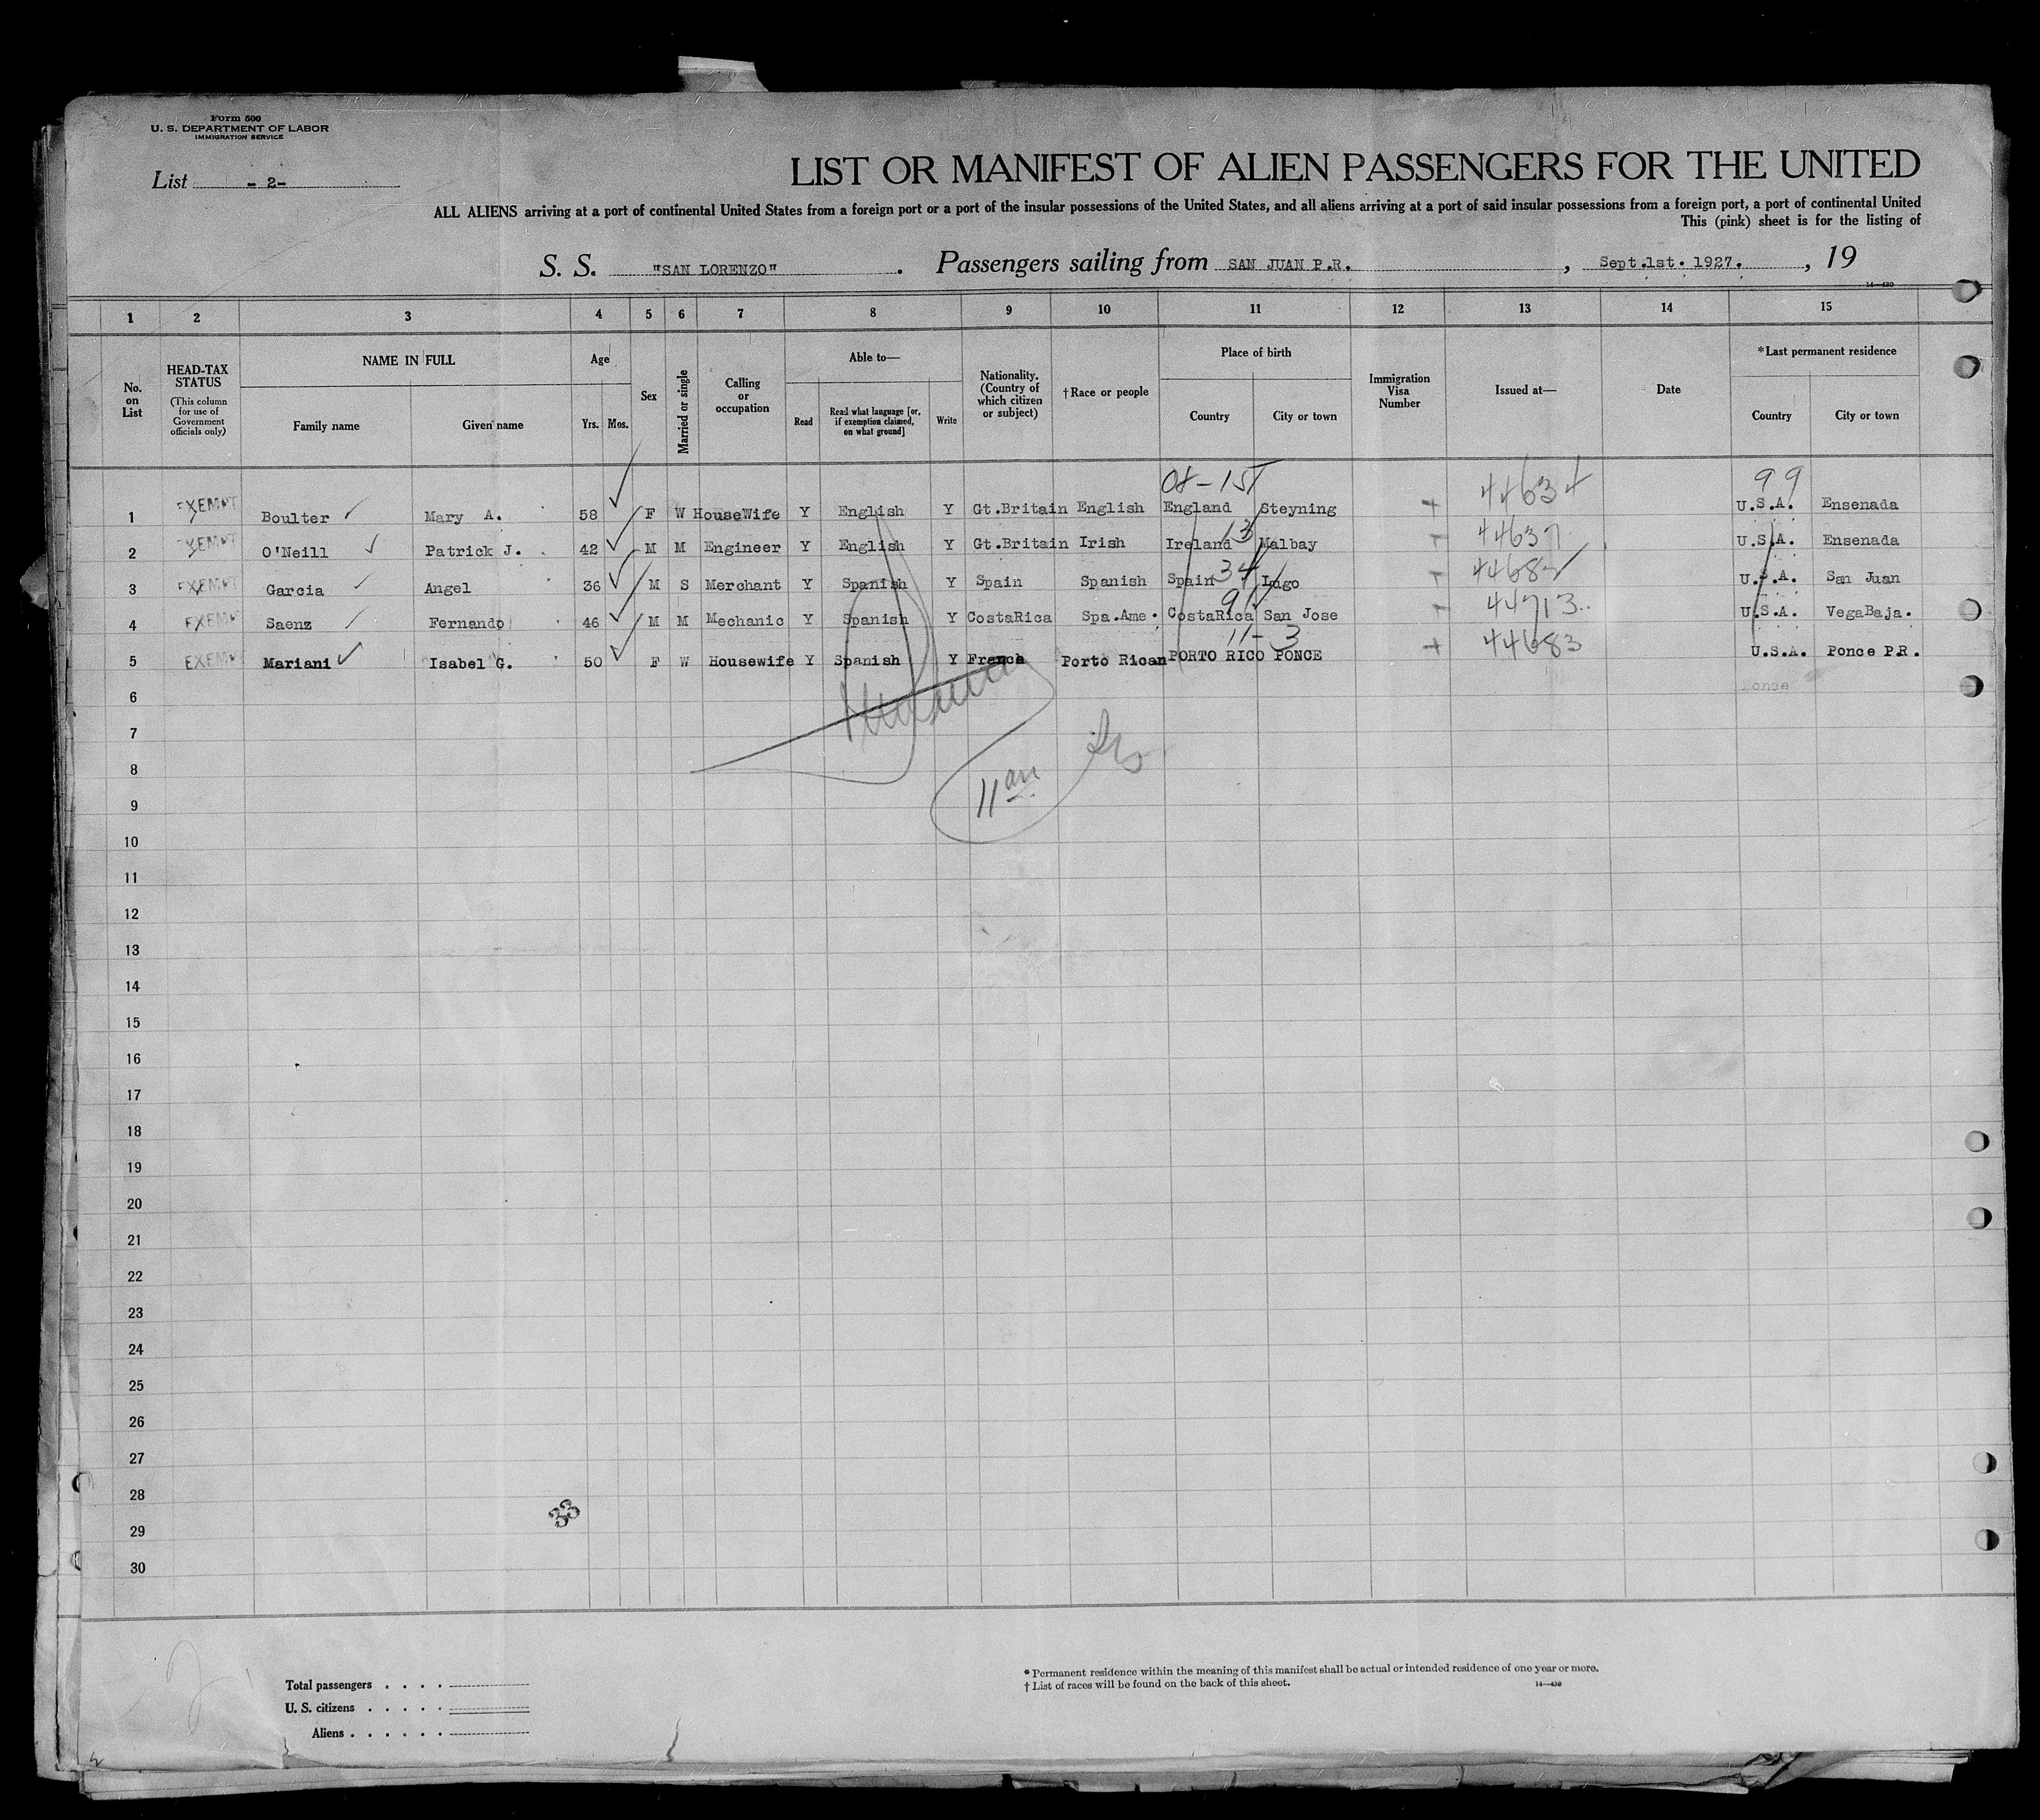 Form 500
U. S. DEPARTMENT OF LABOR
IMMIGRATION SERVICE
List - 2-
LIST OR MANIFEST OF ALIEN PASSENGERS FOR THE UNITED
ALL ALIENS arriving at a port of continental United States from a foreign port or a port of the insular possessions of the United States, and all aliens arriving at a port of said insular possessions from a foreign port, a port of continental United
This (pink) sheet is for the listing of
S. S. "SAN LORENZO" . Passengers sailing from SAN JUAN P.R. , Sept.1st. 1927. , 19
14—430
1 2 3 4 5 6 7 8 9 10 11 12 13 14 15
No. on List
HEAD-TAX STATUS (This column for use of Government officials only)
NAME IN FULL
Family name Given name
Age
Yrs. Mos.
Sex
Married or single
Calling or occupation
Able to—
Read
Read what language [or, if exemption claimed, on what ground]
Write
Nationality. (Country of which citizen or subject)
† Race or people
Place of birth
Country City or town
Immigration Visa Number
Issued at—
Date
*Last permanent residence
Country City or town
99
1 EXEMPT Boulter Mary A. 58 F W HouseWife Y English Y Gt.Britain English England Steyning 44634 U.S.A. Ensenada
13
2 EXEMPT O'Neill Patrick J. 42 M M Engineer Y English Y Gt.Britain Irish Ireland Malbay 44637 U.S.A. Ensenada
34
3 EXEMPT Garcia Angel 36 M S Merchant Y Spanish Y Spain Spanish Spain Lugo U.S.A. San Juan
4 EXEMPT Saenz Fernando 46 M M Mechanic Y Spanish Y CostaRica Spa.Ame. CostaRica San Jose 44713 U.S.A. VegaBaja.
11-3
5 EXEMPT Mariani Isabel G. 50 F W Housewife Y Spanish Y France Porto Rican PORTO RICO PONCE 44683 U.S.A. Ponce P.R.
6 Ponce
7
8
9
10
11
12
13
14
15
16
17
18
19
20
21
22
23
24
25
26
27
28
29
30
Total passengers . . . .
U. S. citizens . . . . .
Aliens . . . . . .
* Permanent residence within the meaning of this manifest shall be actual or intended residence of one year or more.
† List of races will be found on the back of this sheet.
14—430